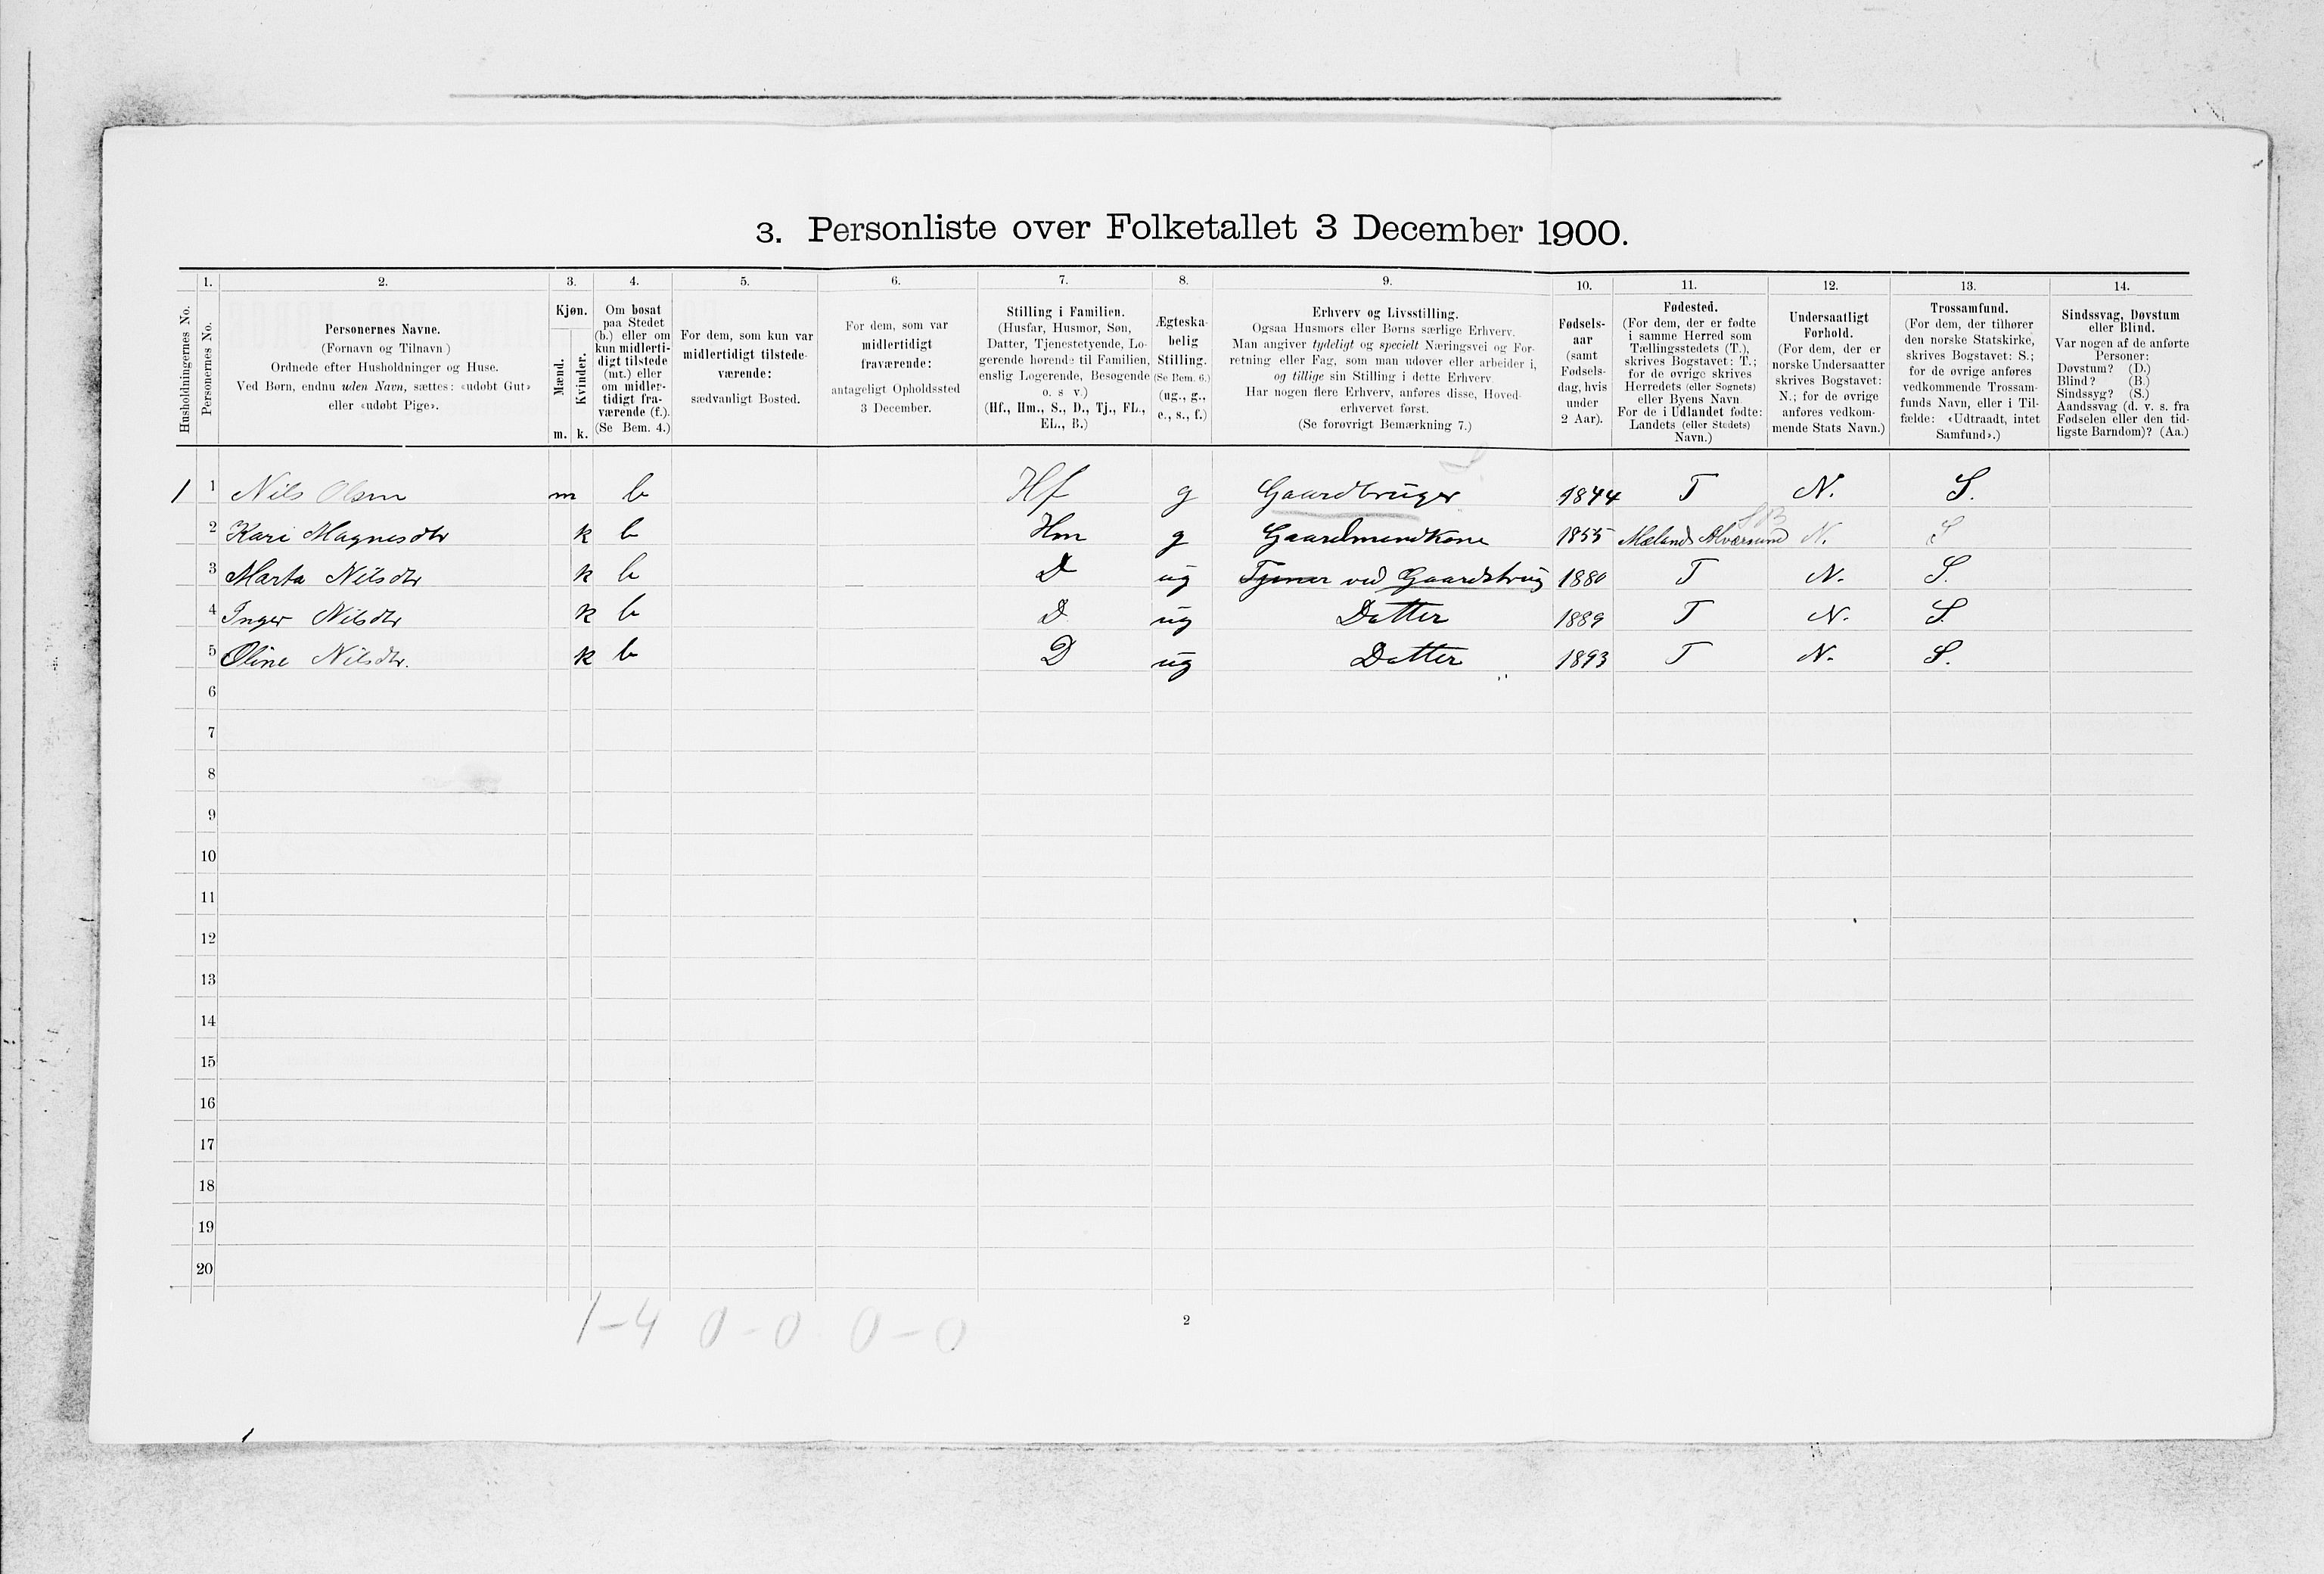 3. Personliste over Folketallet 3 December 1900.
Husholdningernes No.
1.
Personernes No.
2.
Personernes Navne.
(Fornavn og Tilnavn.)
Ordnede efter Husholdninger og Huse.
Ved Børn, endnu uden Navn, sættes: «udøbt Gut»
eller «udøbt Pige».
3.
Kjøn.
Mænd.
Kvinder.
m. k.
4.
Om bosat
paa Stedet
(b.) eller om
kun midlerti-
digt tilstede
(mt.) eller
om midler-
tidigt fra-
værende (f.).
(Se Bem. 4.)
5.
For dem, som kun var
midlertidigt tilstede-
værende:
sædvanligt Bosted.
6.
For dem, som var
midlertidigt
fraværende:
antageligt Opholdssted
3 December.
7.
Stilling i Familien.
(Husfar, Husmor, Søn,
Datter, Tjenestetyende, Lo-
gerende hørende til Familien,
enslig Logerende, Besøgende
o. s v.)
(Hf., Hm., S., D., Tj., FL.,
EL., B.)
8.
Ægteska-
belig
Stilling.
(Se Bem. 6.)
(ug., g.,
e., s., f.)
9.
Erhverv og Livsstilling.
Ogsaa Husmors eller Børns særlige Erhverv.
Man angiver tydeligt og specielt Næringsvei og For-
retning eller Fag, som man udøver eller arbeider i,
og tillige sin Stilling i dette Erhverv.
Har nogen flere Erhverv, anføres disse, Hoved-
erhvervet først.
(Se forøvrigt Bemærkning 7.)
10.
Fødsels-
aar
(samt
Fødsels-
dag, hvis
under
2 Aar).
11.
Fødested.
(For dem, der er fødte
i samme Herred som
Tællingsstedets (T.),
skrives Bogstavet: T.;
for de øvrige skrives
Herredets (eller Sognets)
eller Byens Navn.
For de i Udlandet fødte:
Landets (eller Stedets)
Navn.)
12.
Undersaatligt
Forhold.
(For dem, der er
norske Undersaatter
skrives Bogstavet:
N.; for de øvrige
anføres vedkom-
mende Stats Navn.)
13.
Trossamfund.
(For dem, der tilhører
den norske Statskirke,
skrives Bogstavet: S.;
for de øvrige anføres
vedkommende Trossam-
funds Navn, eller i Til-
fælde: «Udtraadt, intet
Samfund».)
14.
Sindssvag, Døvstum
eller Blind.
Var nogen af de anførte
Personer:
Døvstum? (D.)
Blind? (B.)
Sindssyg? (S.)
Aandssvag (d. v. s. fra
Fødselen eller den tid-
ligste Barndom)? (Aa.)
1 1 Nils Olsen m b Hf g Gaardbruger 1844 T N. S.
2 Kari Magnesdtr k b Hm g Gaardmandkone 1855 Mælands Alværsund N. S
3 Marta Nilsdtr k b D ug Tjener ved Gaardsbrug 1880 T N. S.
4 Inger Nilsdtr k b D ug Datter 1889 T N. S.
5 Oline Nilsdtr. k b D ug Datter 1893 T N. S.
6
7
8
9
10
11
12
13
14
15
16
17
18
19
20
1-4 0-0 0-0
2